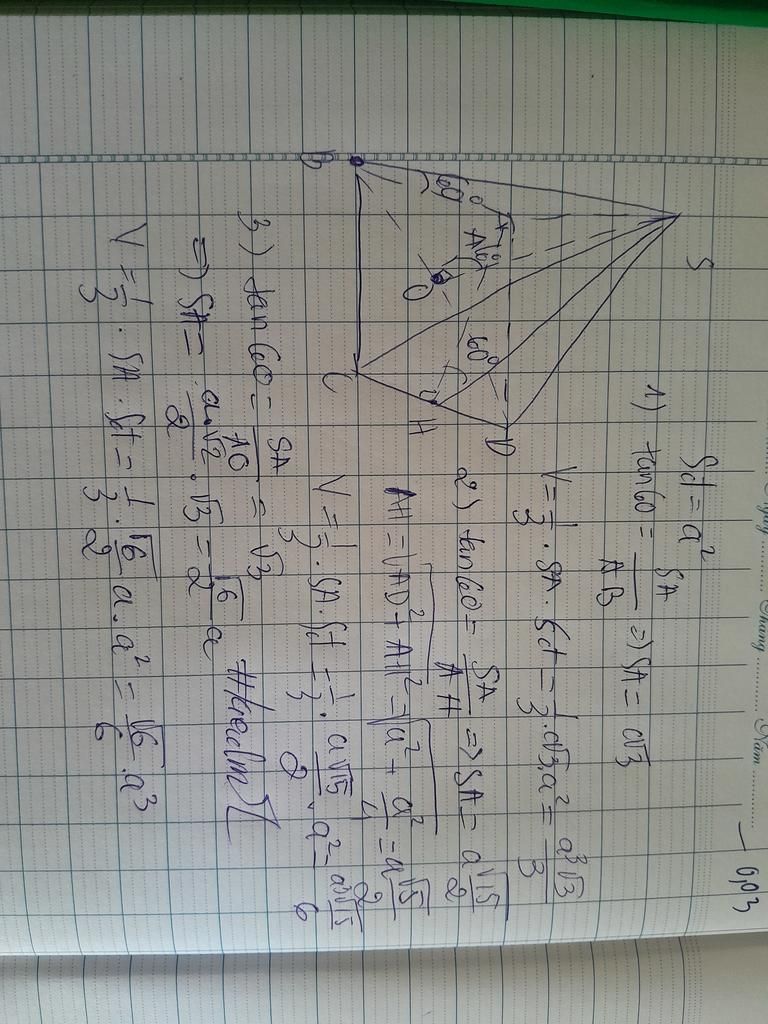 Ngày ......... Tháng ......... Năm .........
- 0,03
Sđ = a²
1) tan60 = SA/AB => SA = a√3
V = 1/3 . SA . Sđ = 1/3 . a√3 . a² = a³√3/3
2) tan60 = SA/AH => SA = a√15/2
AH = √AD² + AH² = √a² + a²/4 = a√5/2
V = 1/3 . SA . Sđ = 1/3 . a√15/2 . a² = a³√15/6
3) tan60 = SA/AO = √3
=> SA = a.√2/2 . √3 = √6/2 a
V = 1/3 . SA . Sđ = 1/3 . √6/2 a . a² = √6/6 . a³
S
A
60°
60°
B
O
C
H
D